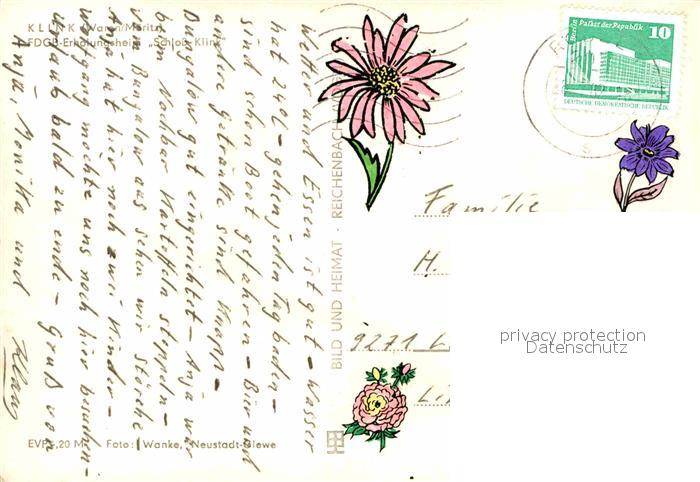 KLINK (Waren/Müritz)
FDGB-Erholungsheim „Schloß Klink"
Wetter und Essen ist gut – Wasser
hat 24°C – gehen jeden Tag baden –
sind schon Boot gefahren – Bier und
andre Getränke sind knapp –
Bungalow gut eingerichtet – Anja war
beim Nachbar Kartoffeln stoppen –
vom Bungalow aus sehen wir Störche
Anja hat hier noch zwei Kinder –
uns noch hier besuchen –
Urlaub bald zu ende – Gruß von
Anja, Monika und Klaus
EVP -,20 M Foto: Wanke, Neustadt-Glewe
BILD UND HEIMAT · REICHENBACH
Berlin Palast der Republik
10
DEUTSCHE DEMOKRATISCHE REPUBLIK
Familie
H.
9271 L
privacy protection
Datenschutz